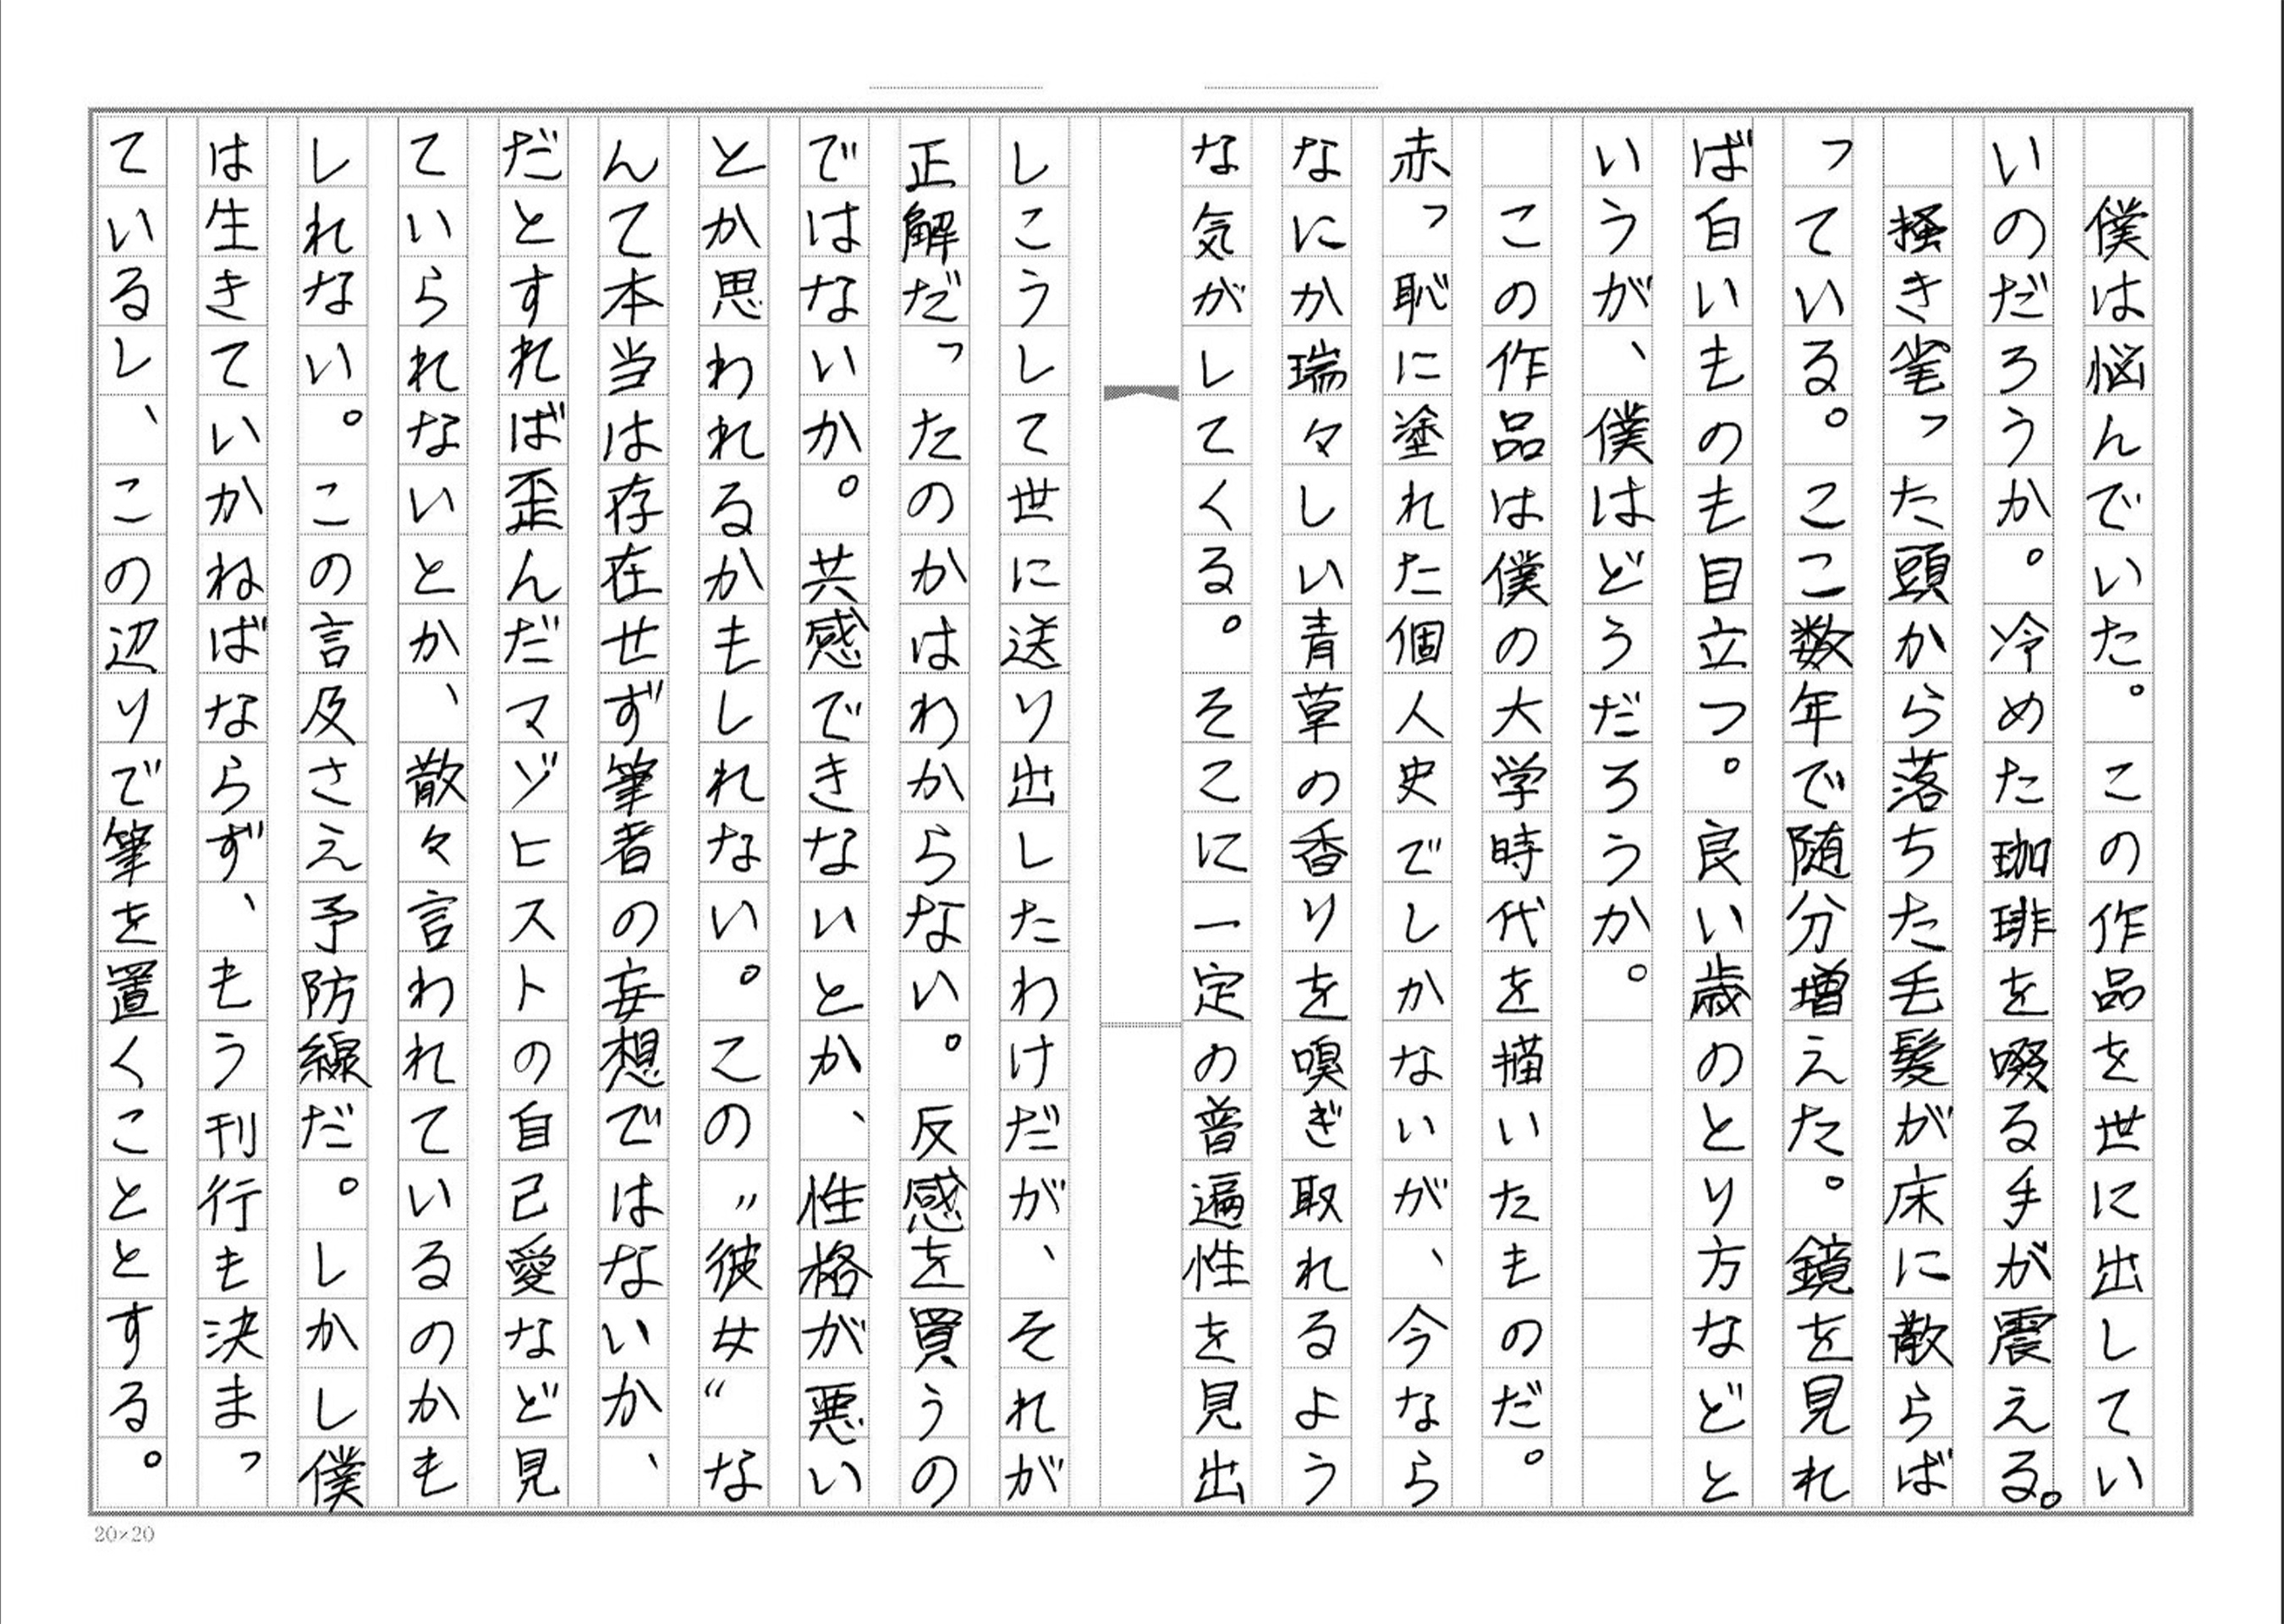 僕は悩んでいた。この作品を世に出してい
いのだろうか。冷めた珈琲を啜る手が震える。
　掻き毟った頭から落ちた毛髪が床に散らば
っている。ここ数年で随分増えた。鏡を見れ
ば白いものも目立つ。良い歳のとり方などと
いうが、僕はどうだろうか。
　この作品は僕の大学時代を描いたものだ。
赤っ恥に塗れた個人史でしかないが、今なら
なにか瑞々しい青草の香りを嗅ぎ取れるよう
な気がしてくる。そこに一定の普遍性を見出
しこうして世に送り出したわけだが、それが
正解だったのかはわからない。反感を買うの
ではないか。共感できないとか、性格が悪い
とか思われるかもしれない。この〃彼女〃な
んて本当は存在せず筆者の妄想ではないか、
だとすれば歪んだマゾヒストの自己愛など見
ていられないとか、散々言われているのかも
しれない。この言及さえ予防線だ。しかし僕
は生きていかねばならず、もう刊行も決まっ
ているし、この辺りで筆を置くこととする。
20×20